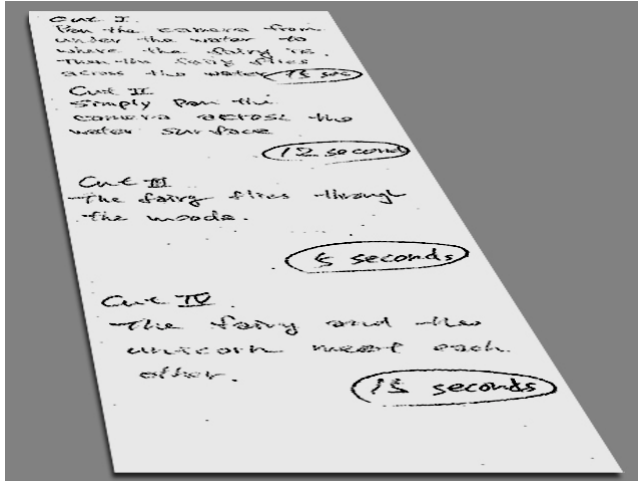 Cut I.
Pan the camera from
under the water to
where the fairy is.
Then the fairy flies
across the water 15 sec
Cut II
Simply Pan the
camera across the
water surface
12 second
Cut III
The fairy flies through
the woods.
5 seconds
Cut IV
The fairy and the
unicorn meet each
other.
15 seconds